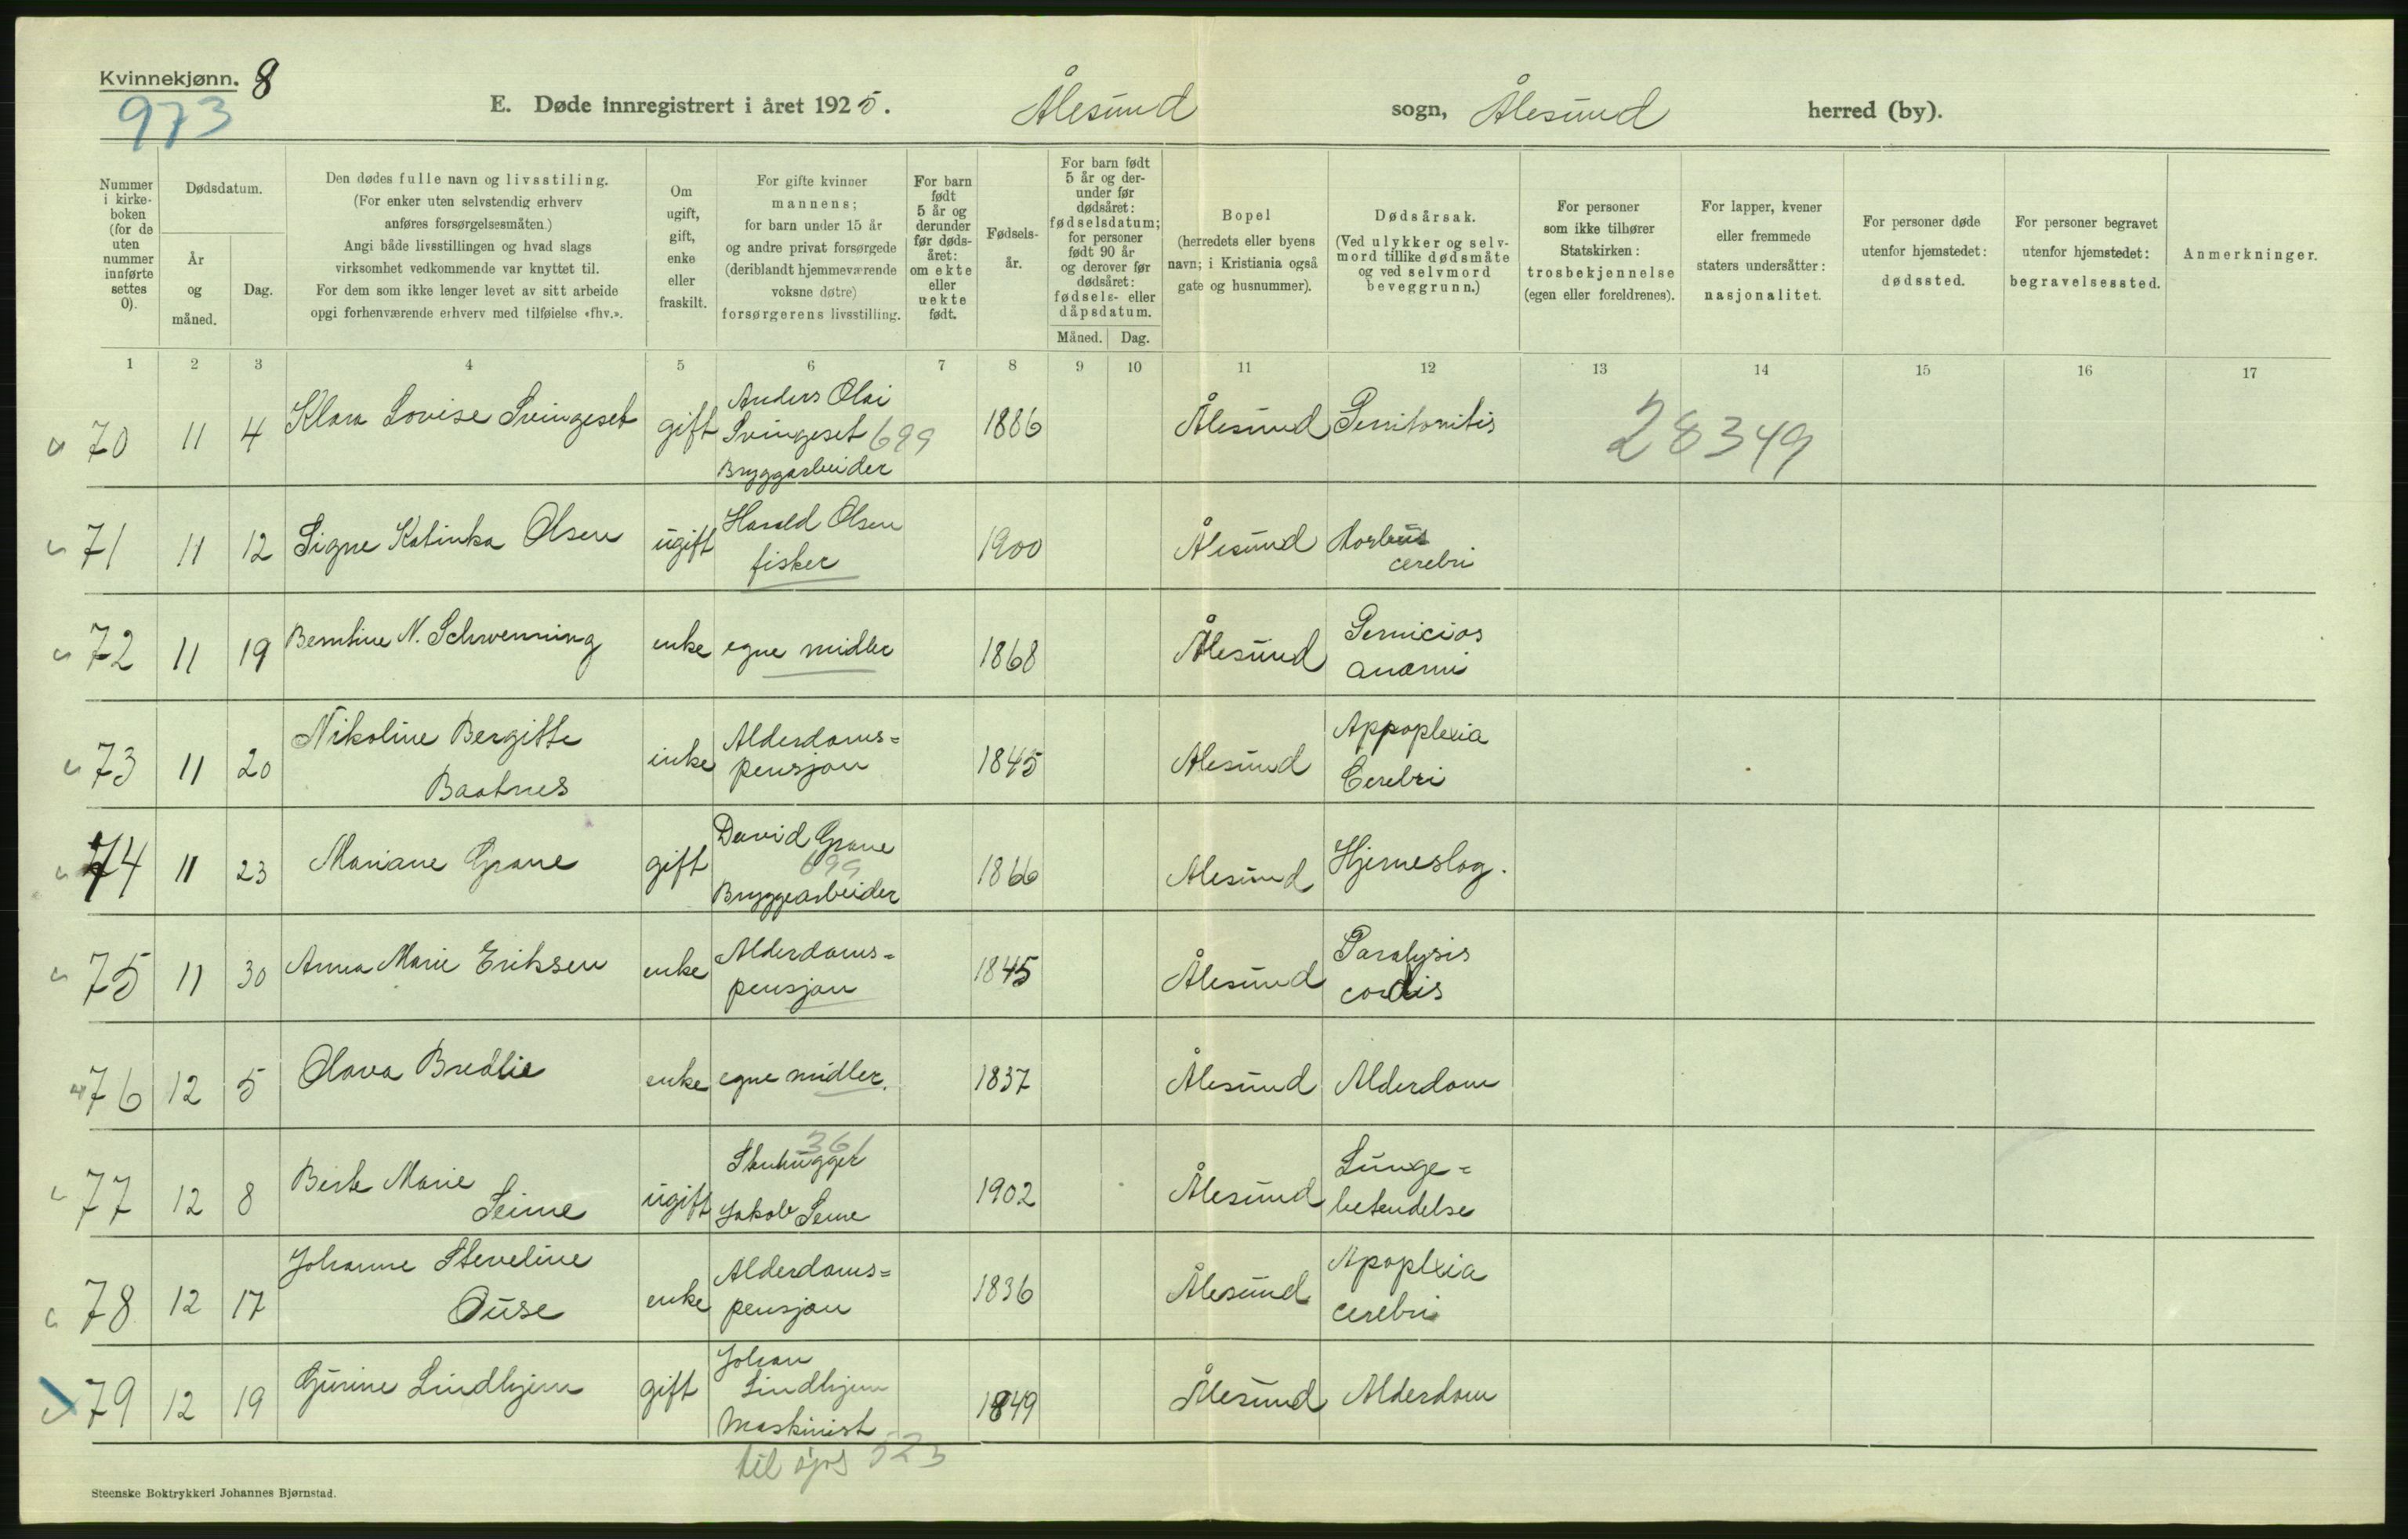 Kvinnekjønn. 8
973
E. Døde innregistrert i året 1925. Ålesund sogn, Ålesund herred (by).
Nummer i kirke-boken (for de uten nummer innførte settes 0).
Dødsdatum.
År og måned.
Dag.
Den dødes fulle navn og livsstiling.
(For enker uten selvstendig erhverv
anføres forsørgelsesmåten.)
Angi både livsstillingen og hvad slags
virksomhet vedkommende var knyttet til.
For dem som ikke lenger levet av sitt arbeide
opgi forhenværende erhverv med tilføielse «fhv.».
Om ugift, gift, enke eller fraskilt.
For gifte kvinner
mannens;
for barn under 15 år
og andre privat forsørgede
(deriblandt hjemmeværende
voksne døtre)
forsørgerens livsstilling.
For barn født 5 år og derunder før døds-året: om ekte eller uekte født.
Fødsels-år.
For barn født 5 år og der-under før dødsåret: fødselsdatum; for personer født 90 år og derover før dødsåret: fødsels- eller dåpsdatum.
Måned. Dag.
Bopel
(herredets eller byens
navn; i Kristiania også
gate og husnummer).
Dødsårsak.
(Ved ulykker og selv-
mord tillike dødsmåte
og ved selvmord
beveggrunn.)
For personer
som ikke tilhører
Statskirken:
trosbekjennelse
(egen eller foreldrenes).
For lapper, kvener
eller fremmede
staters undersåtter:
nasjonalitet.
For personer døde
utenfor hjemstedet:
dødssted.
For personer begravet
utenfor hjemstedet:
begravelsessted.
Anmerkninger.
1 2 3 4 5 6 7 8 9 10 11 12 13 14 15 16 17
70 11 4 Klara Lovise Svingeset gift Anders Olai Svingeset 699 Bryggarbeider 1886 Ålesund Peritonitis 28349
71 11 12 Signe Katinka Olsen ugift Harald Olsen fisker 1900 Ålesund Morbus cerebri
72 11 19 Berntine N. Schwenning enke egne midler 1868 Ålesund Pernicios anæmi
73 11 20 Nikoline Bergitte Baatnes enke Alderdoms= pensjon 1845 Alesund Appoplexia Cerebri
74 11 23 Mariane Grane gift David Grane 699 Bryggearbeider 1866 Alesund Hjerneslag.
75 11 30 Anna Marie Eriksen enke Alderdoms= pensjon 1845 Ålesund Paralysis cordis
76 12 5 Olava Bredlie enke egne midler. 1837 Ålesund Alderdom
77 12 8 Berte Marie Seime ugift 361 Stenhugger Jakob Seme 1902 Ålesund Lunge= betendelse
78 12 17 Johanne Steveline Ouse enke Alderdoms= pensjon 1836 Ålesund Apoplexia cerebri
79 12 19 Gurine Lindhjem gift Johan Lindhjem Maskinist 1849 Ålesund Alderdom
til sjøs 523
Steenske Boktrykkeri Johannes Bjørnstad.